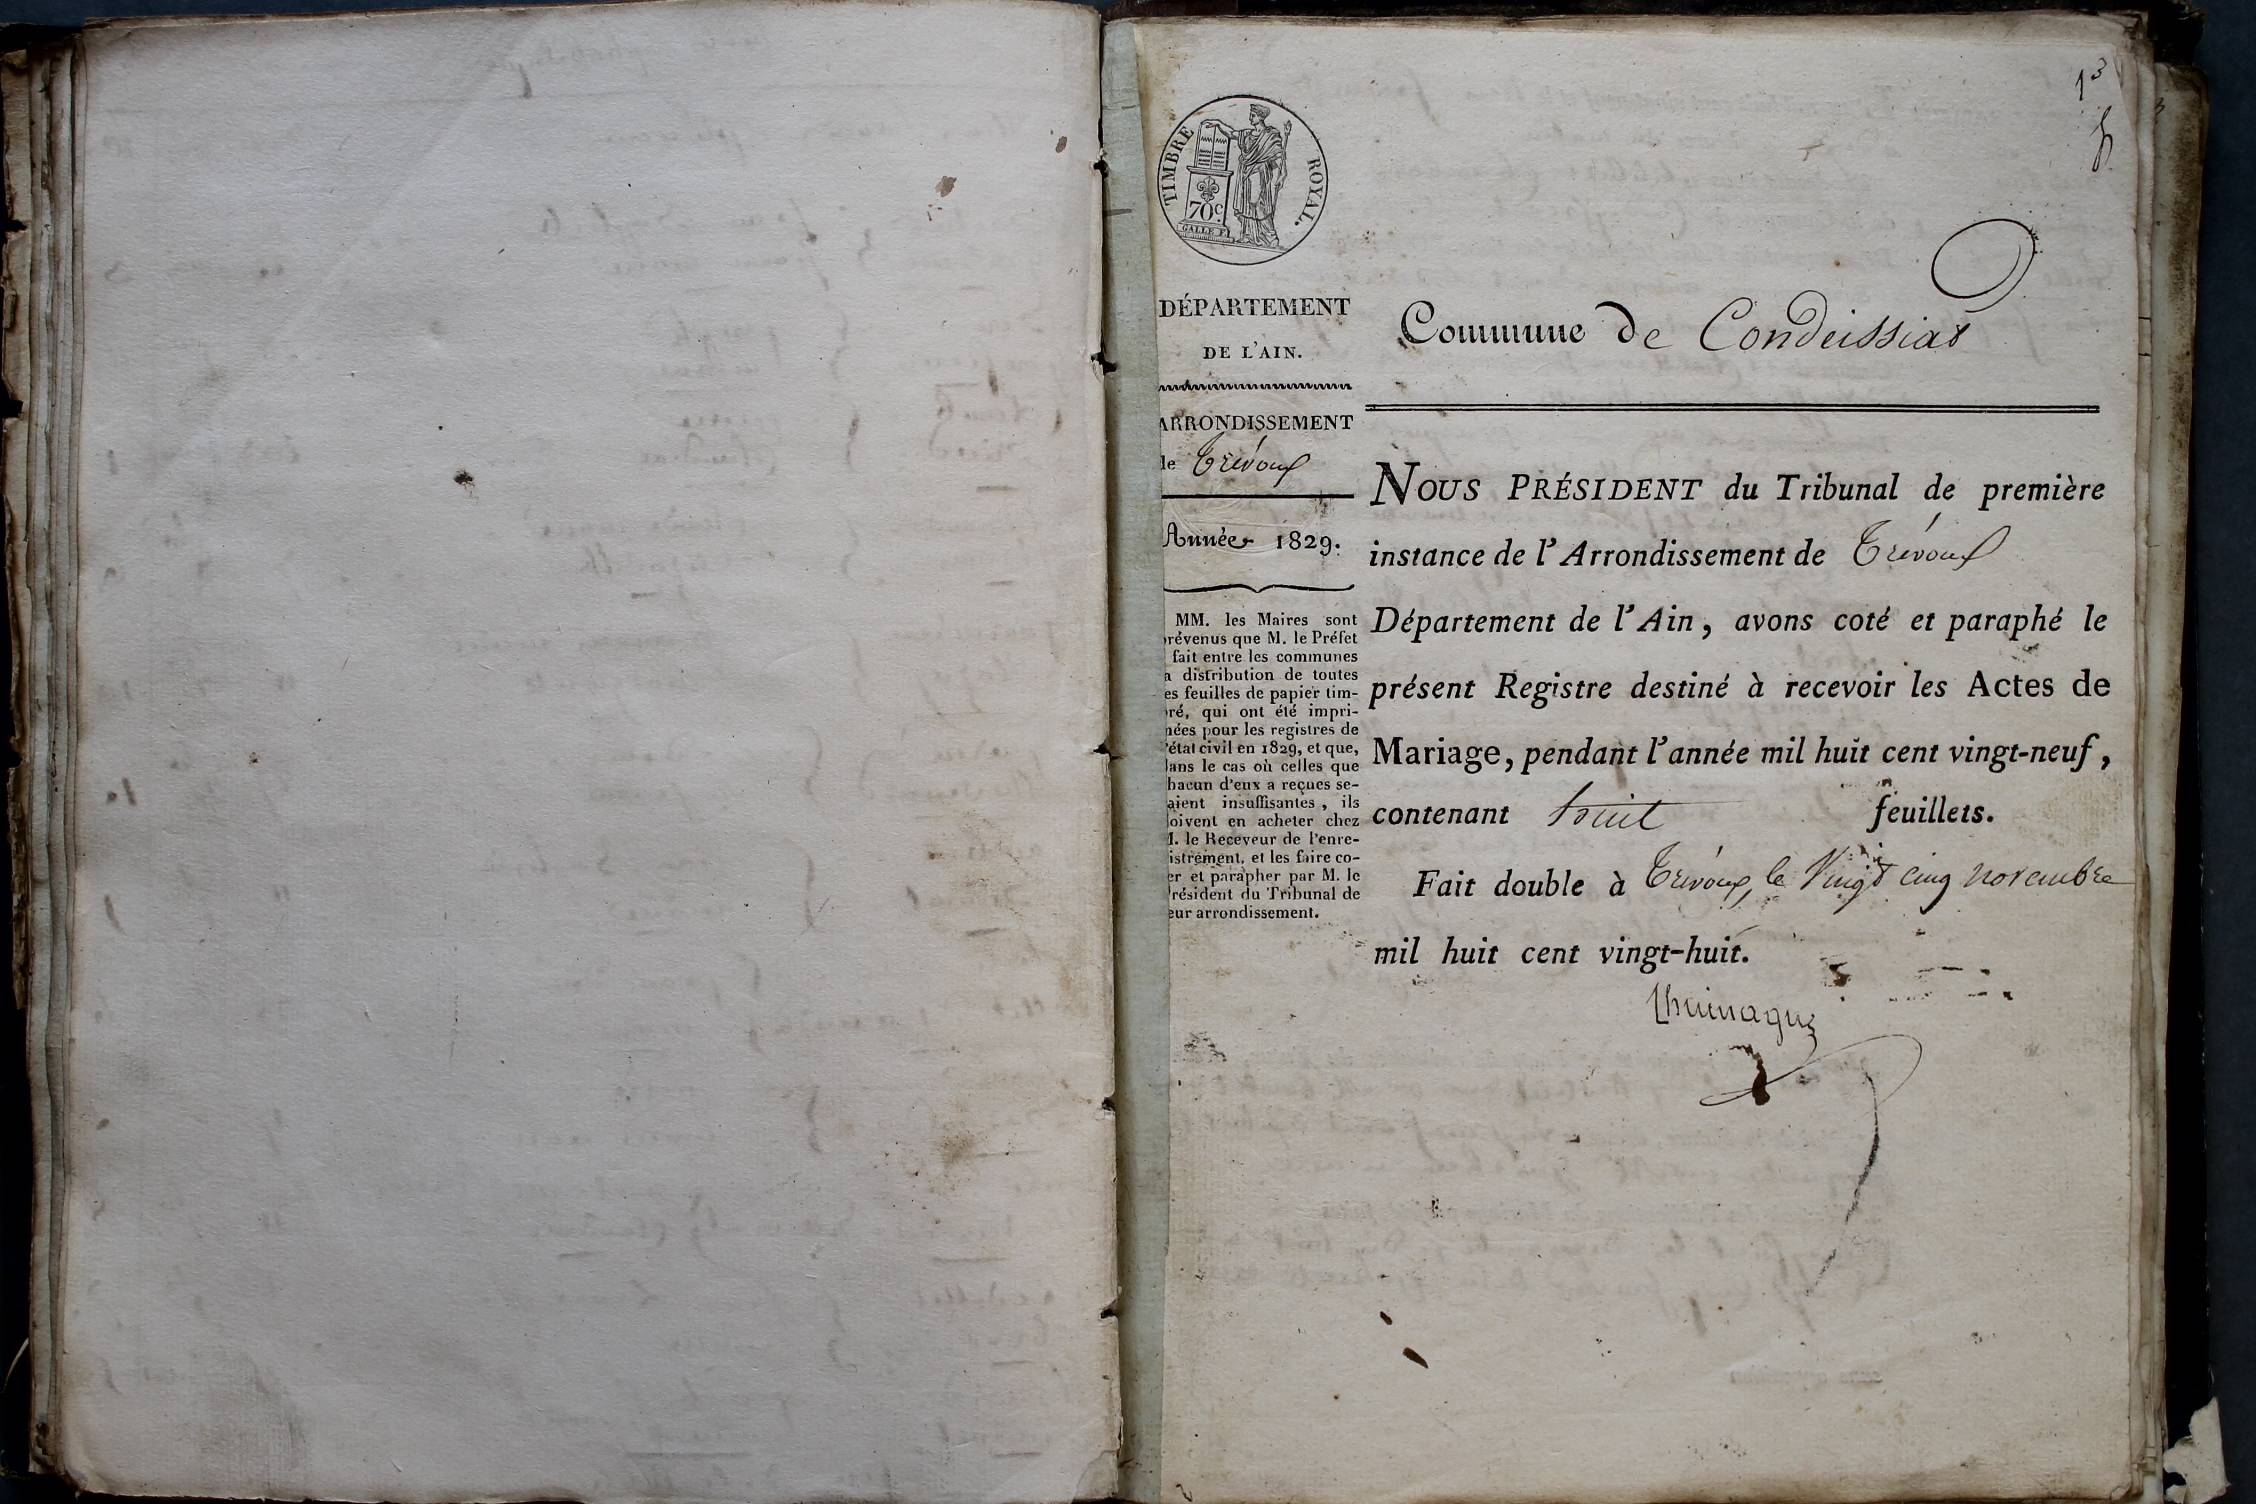 1
TIMBRE ROYAL.
70c.
GALLE F.
DÉPARTEMENT
DE L'AIN.
ARRONDISSEMENT
de Trévoux
Année 1829.
MM. les Maires sont
prévenus que M. le Préfet
fait entre les communes
a distribution de toutes
es feuilles de papier tim-
bré, qui ont été impri-
mées pour les registres de
l'état civil en 1829, et que,
dans le cas où celles que
chacun d'eux a reçues se-
raient insuffisantes, ils
doivent en acheter chez
M. le Receveur de l'enre-
gistrement, et les faire co-
er et parapher par M. le
Président du Tribunal de
eur arrondissement.
Commune de Condeissiat
NOUS PRÉSIDENT du Tribunal de première
instance de l'Arrondissement de Trévoux
Département de l'Ain, avons coté et paraphé le
présent Registre destiné à recevoir les Actes de
Mariage, pendant l'année mil huit cent vingt-neuf,
contenant huit feuillets.
Fait double à Trévoux, le Vingt cinq novembre
mil huit cent vingt-huit.